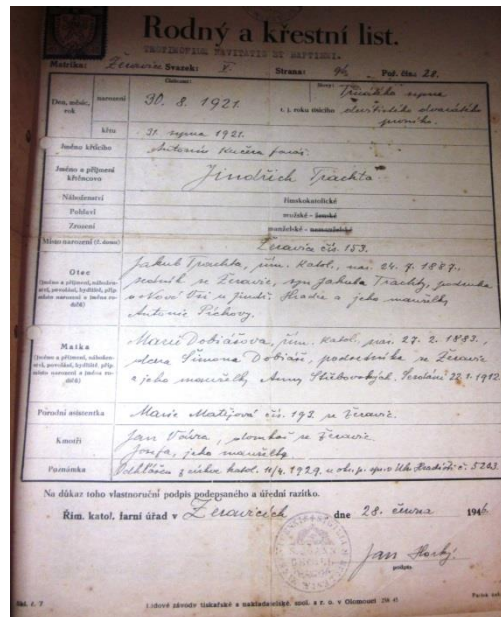 Rodný a křestní list.
TESTIMONIUM NATIVITATIS ET BAPTISMI.
Matrika: Žeravice Svazek: V. Strana: 96 Poř. čís.: 28.
Číslicemi: Slovy:
Den, měsíc, rok
narození 30. 8. 1921. t. j. roku tisícího
Třicátého srpna
devítistého dvacátého
prvního.
křtu 31. srpna 1921.
Jméno křtícího Antonín Kučera farář.
Jméno a příjmení křtěncovo Jindřich Trachta
Náboženství římskokatolické
Pohlaví mužské - ženské
Zrození manželské - nemanželské
Místo narození (č. domu) Žeravice čís. 153.
Otec
(jméno a příjmení, náboženství, povolání, bydliště, příp. místo narození a jména rodičů)
Jakub Trachta, řím. katol., nar. 24. 7. 1887.,
rolník v Žeravic, syn Jakuba Trachty,
z Nové Vsi u Jindř. Hradce a jeho manželky
Antonie
Matka
(jméno a příjmení, náboženství, povolání, bydliště, příp. místo narození a jména rodičů)
Marie Dobiášova, řím. katol., nar. 27. 2. 1883.,
dcera Šimona Dobiáš, podsedníka v Žeravic
a jeho manželky Anny 22.1.1912.
Porodní asistentka Marie Matějová čís. 193 v Žeravic.
Kmotři
Jan Vávra, v Žeravic
Josefa, jeho manželka
Poznámka z církve katol. 11/4. 1929. u okr. v Uh. Hradišti č.
Na důkaz toho vlastnoruční podpis podepsaného a úřední razítko.
Řím. katol. farní úřad v Žeravicích dne 28. června 1946
Jan Horký.
podpis
Skl. č. 7 Lidové závody tiskařské a nakladatelské, spol. s r. o. v Olomouci